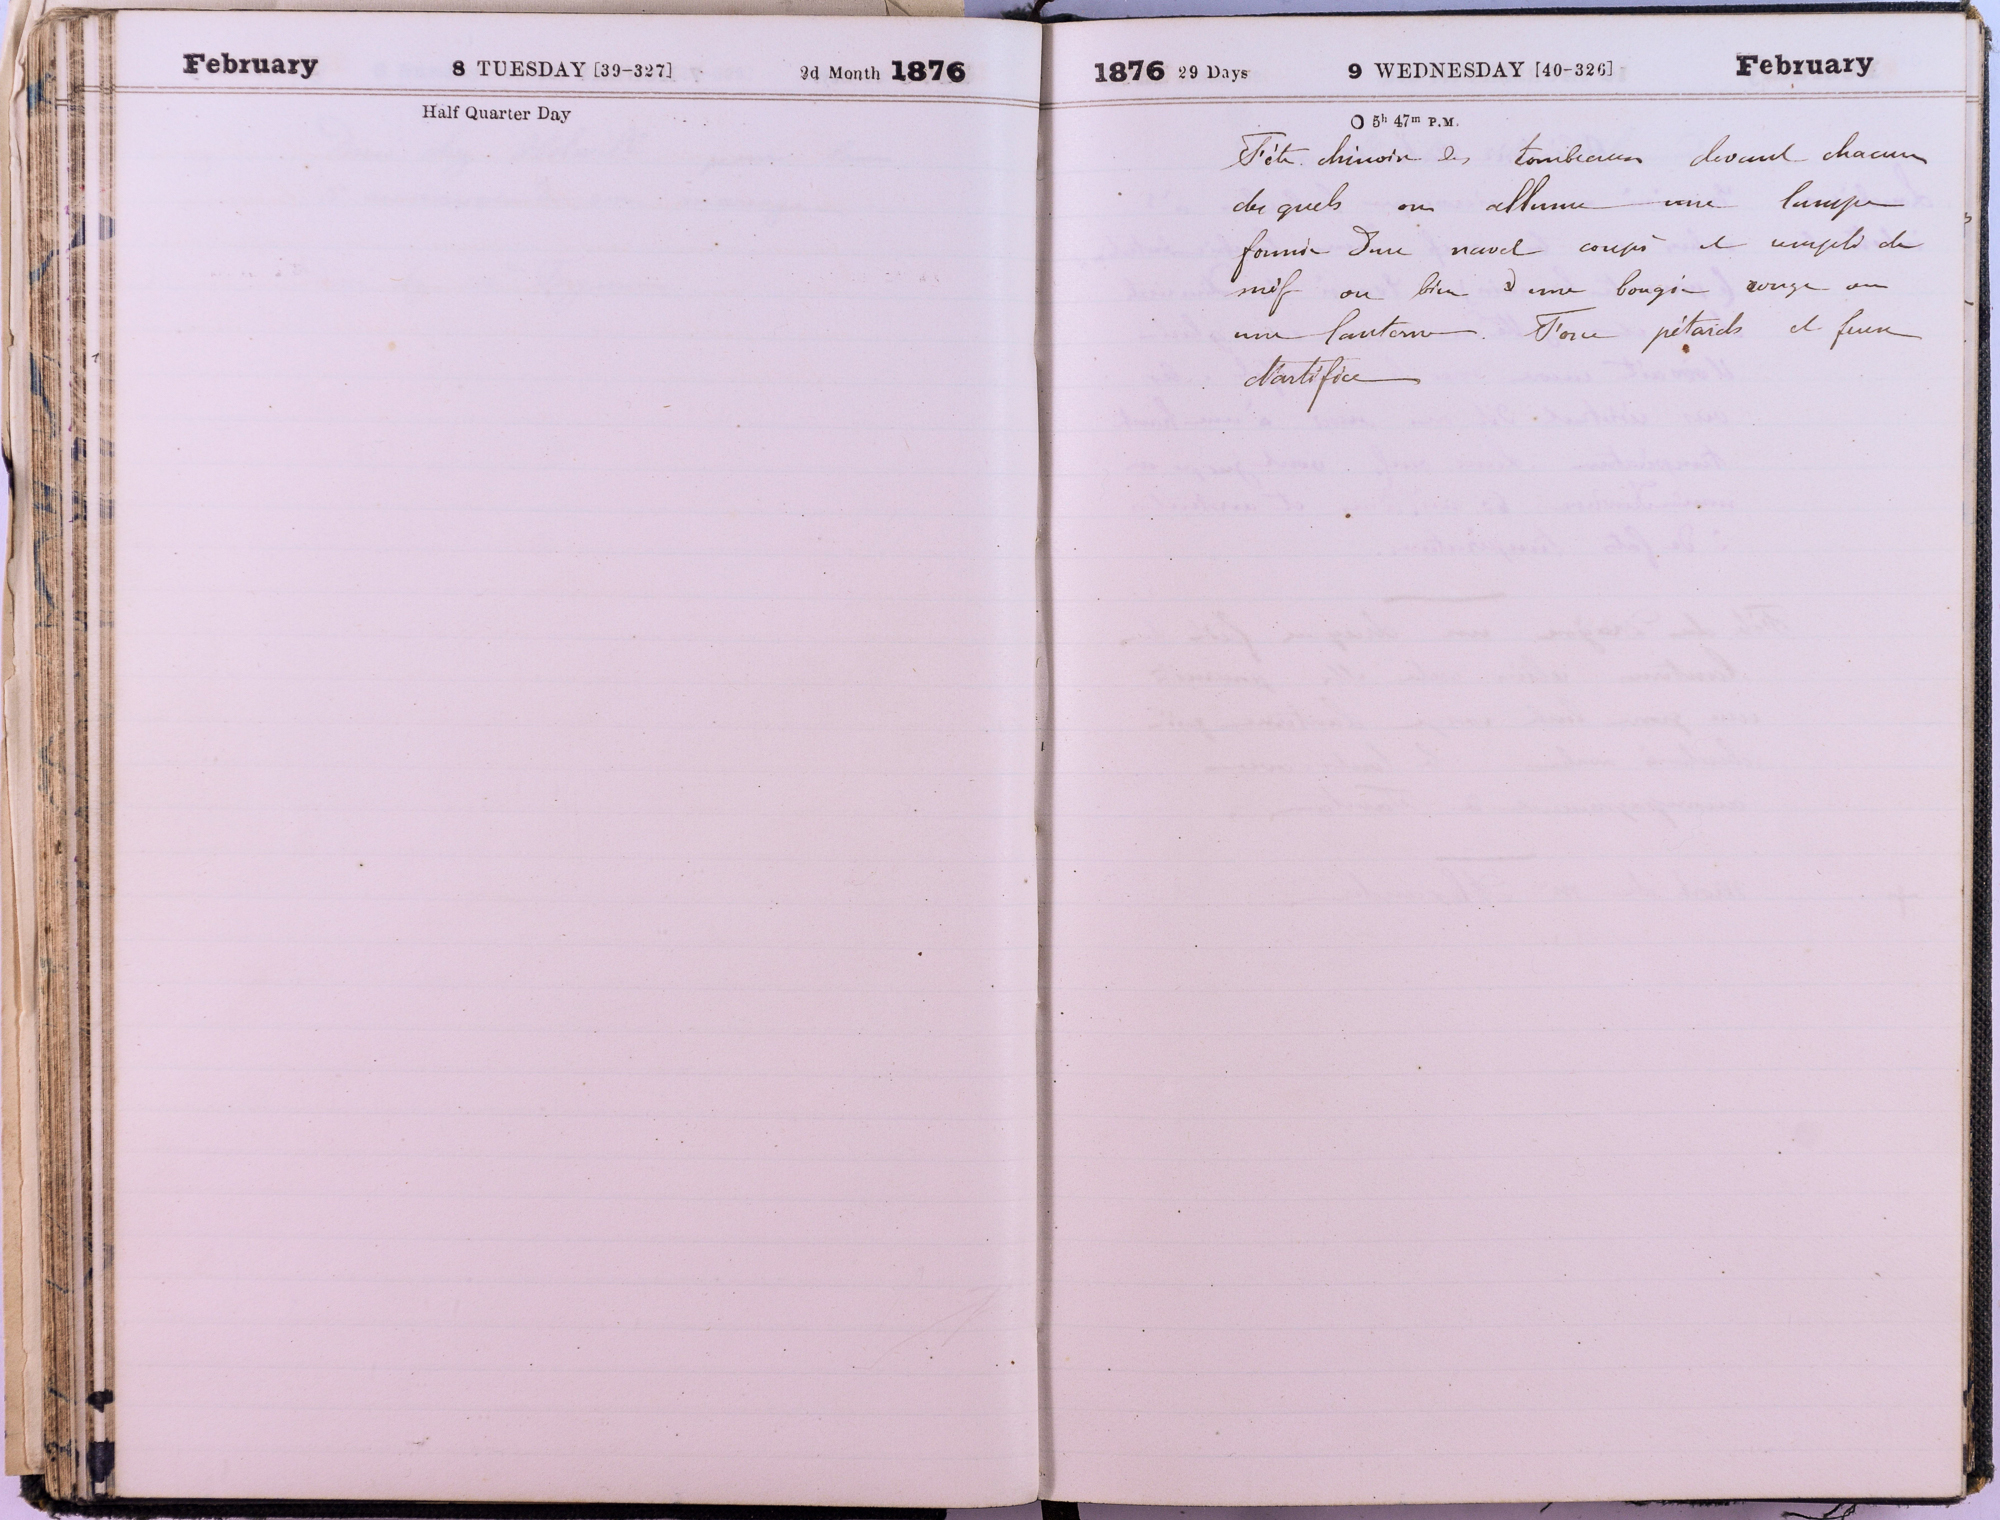 February 8 TUESDAY [39-327] 2d Month 1876
Half Quarter Day
1876 29 Days 9 WEDNESDAY [40-326] February
5h 47m P.M.
Fête chinoise des tombeaux devant chacun
desquels on allume une lampe
formée d'un navet coupé et rempli de
suif ou bien d'une bougie rouge ou
une lanterne. Force pétards et feux
d'artifice